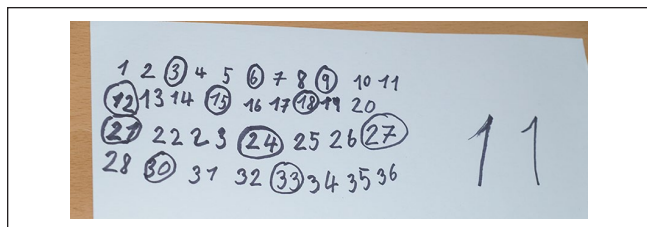 1 2 3 4 5 6 7 8 9 10 11
12 13 14 15 16 17 18 19 20
21 22 23 24 25 26 27
28 30 31 32 33 34 35 36
11